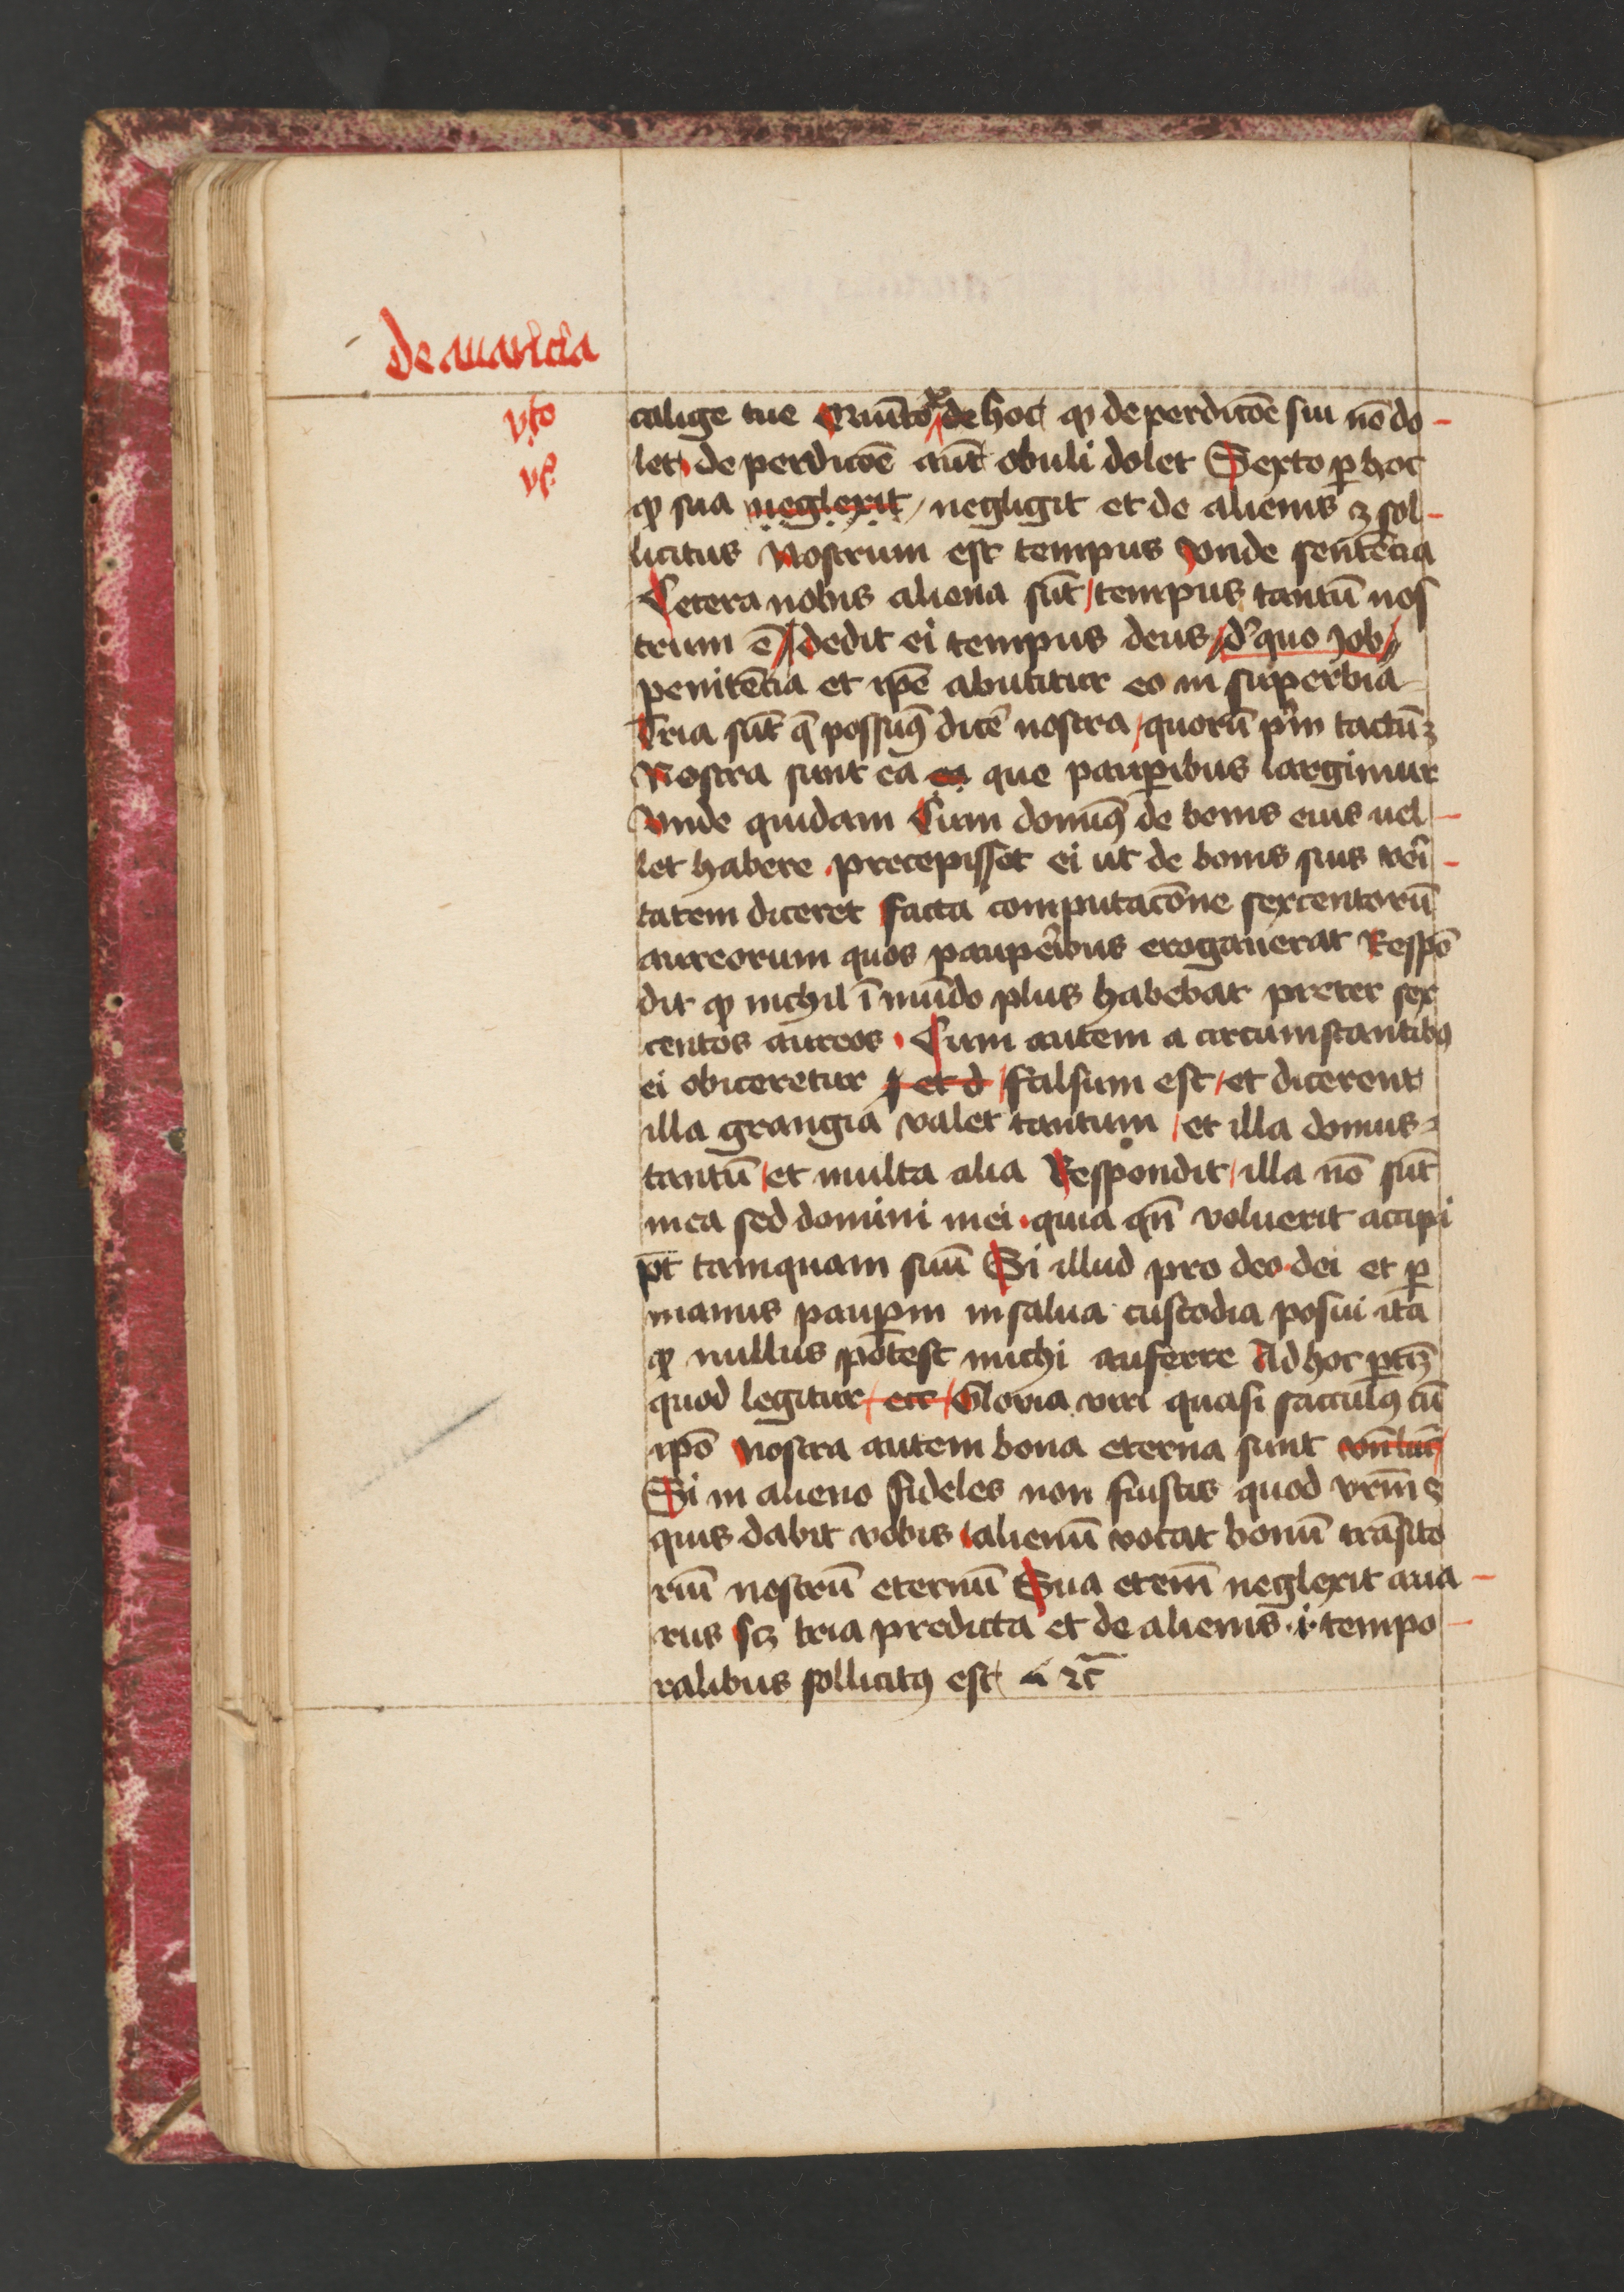 de auaricia
vto
vj
calige tue Quīto ꝑ de hoc ꝙ de perdicōe sui nō do-
let de perdicōe aūt obuli dolet Sexto ꝑ hoc
ꝙ sua neglexit negligit et de alienis ꝫ sol-
licitus Nostrum est tempus Vnde sentēcia
Cetera nobis aliena sūt / tempus tantū nos
trum ē / dedit ei tempus deus / d' quo Job /
penitēcia et ip̄e abutitur eo in superbia
Tria sūt q̄ possuꝰ dicē nostra / quorū pm̄ tactūꝫ
Nostra sunt ea ea que pauꝑibus largimur
Vnde quidam Cum domiꝰ de bonis eius uel-
let habere precepisset ei ut de bonis suis veri-
tatem diceret facta computacōne sexcentorū
aureorum quos pauperibus erogauerat Respō
dit ꝙ nichil ī mūdo plus habebat preter sex
centos aureos Cum autem a circumstantibꝰ
ei obiceretur ꝙ et d / falsum est / et dicerent
illa grangia valet tantum / et illa domus
tantū / et multa alia Respondit / illa nō sūt
mea sed domini mei quia qn̄ voluerit accipi
pt̄ tamquam suū Si illud pro deo dei et ꝑ
manus pauꝑm in salua custodia posui ita
ꝙ nullus potest michi auferre Ad hoc ꝑtꝫ
quod legitur / ecc / Gloria viri quasi sacculꝰ cū
ip̄o Nostra autem bona eterna sunt
Si in alieno fideles non fuistis quod vr̄m ē
quis dabit vobis / alienū vocat bonū trāsito
riū nostrū eternū Sua etem̄ neglexit aua-
rus scꝫ tria predicta et de alienis .i. tempo-
ralibus sollicitꝰ est ⁊c̄